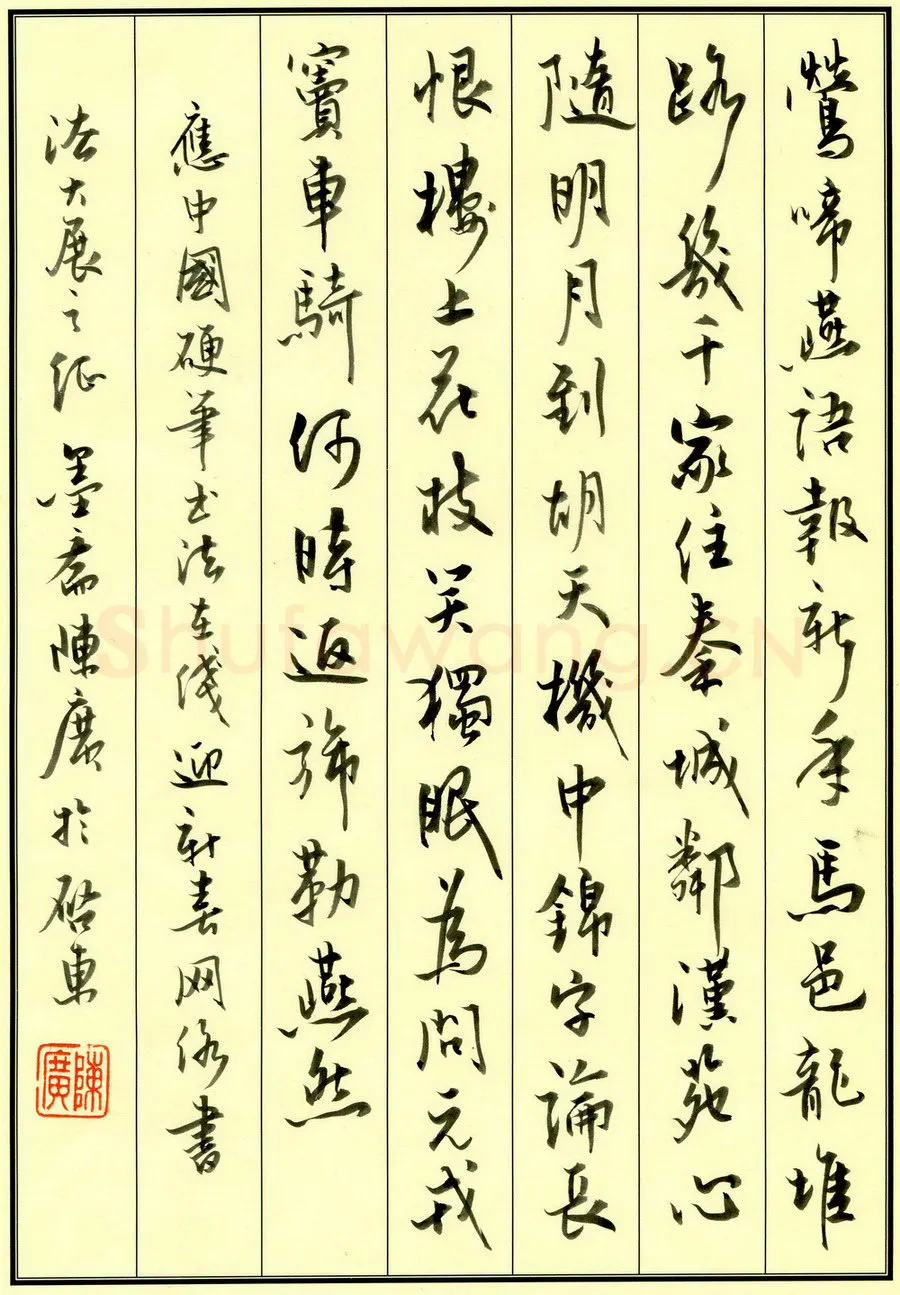 鶯啼燕語報新年馬邑龍堆
路幾千家住秦城鄰漢苑心
隨明月到胡天機中錦字論長
恨樓上花枝笑獨眠為問元戎
竇車騎何時返旆勒燕然
應中國硬筆书法在线迎新春网络書
法大展之征 墨斋陳廣於启東
陳廣
Shufawang.CN